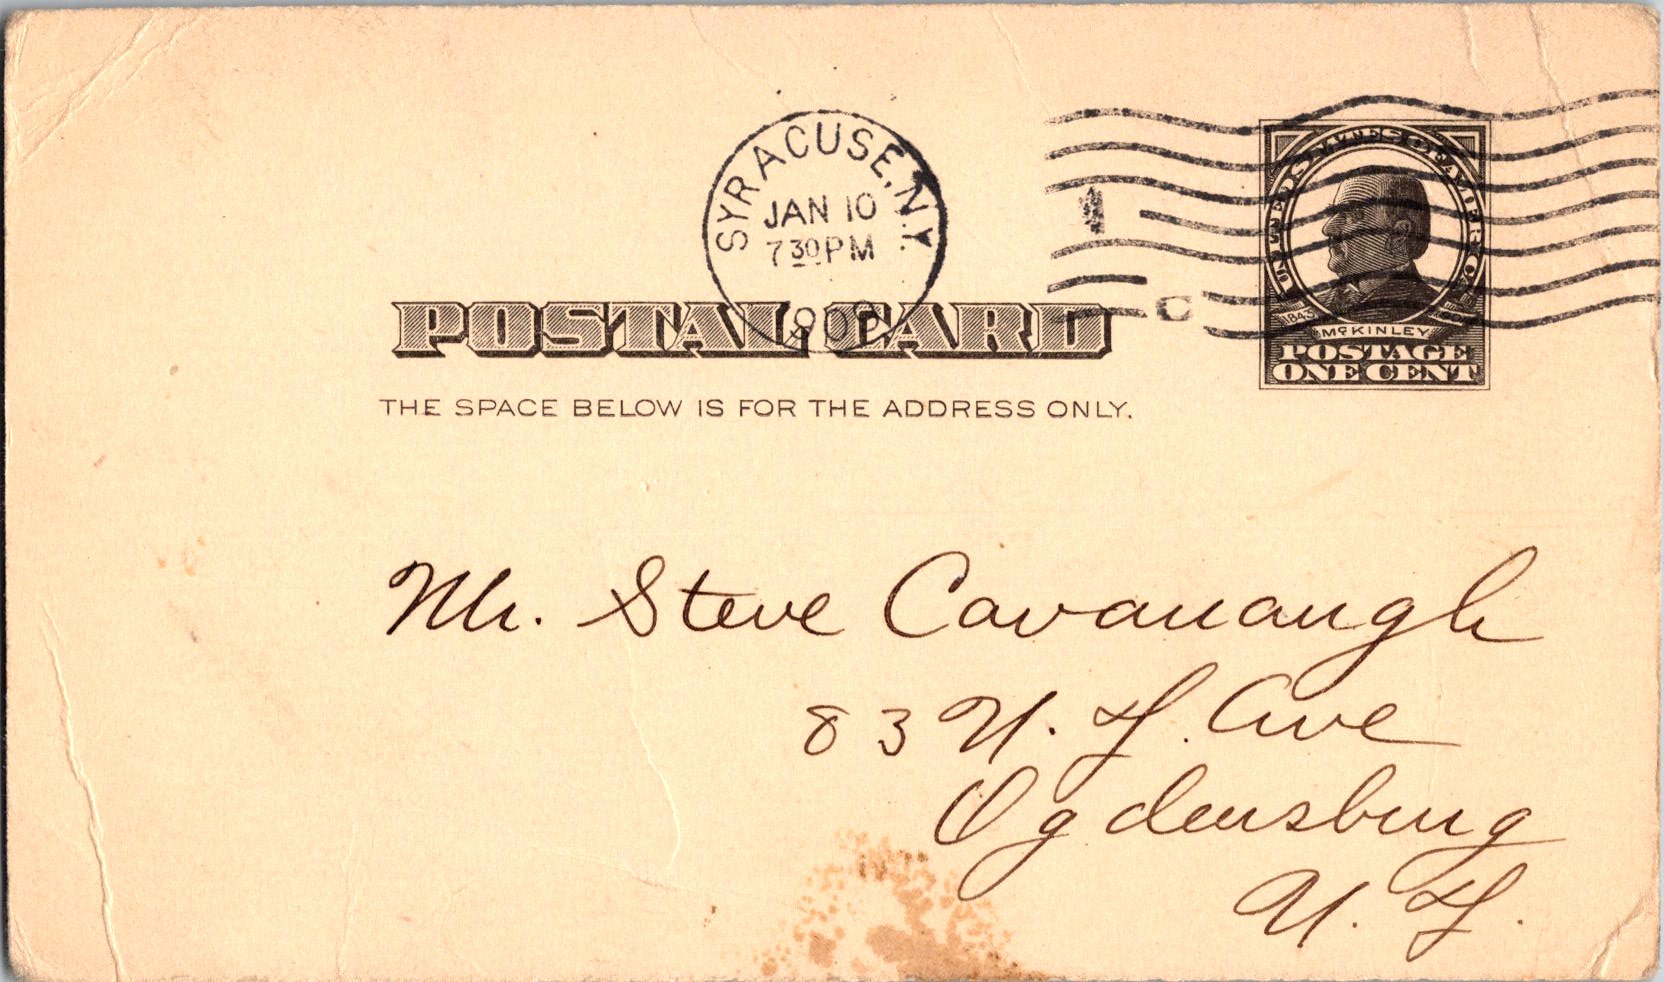 SYRACUSE, N.Y.
JAN 10
7 30 PM
1909
1
C
UNITED STATES OF AMERICA
1843
McKINLEY
POSTAGE
ONE CENT
POSTAL CARD
THE SPACE BELOW IS FOR THE ADDRESS ONLY.
Mr. Steve Cavanaugh
83 N. Y. Ave
Ogdensburg
N. Y.